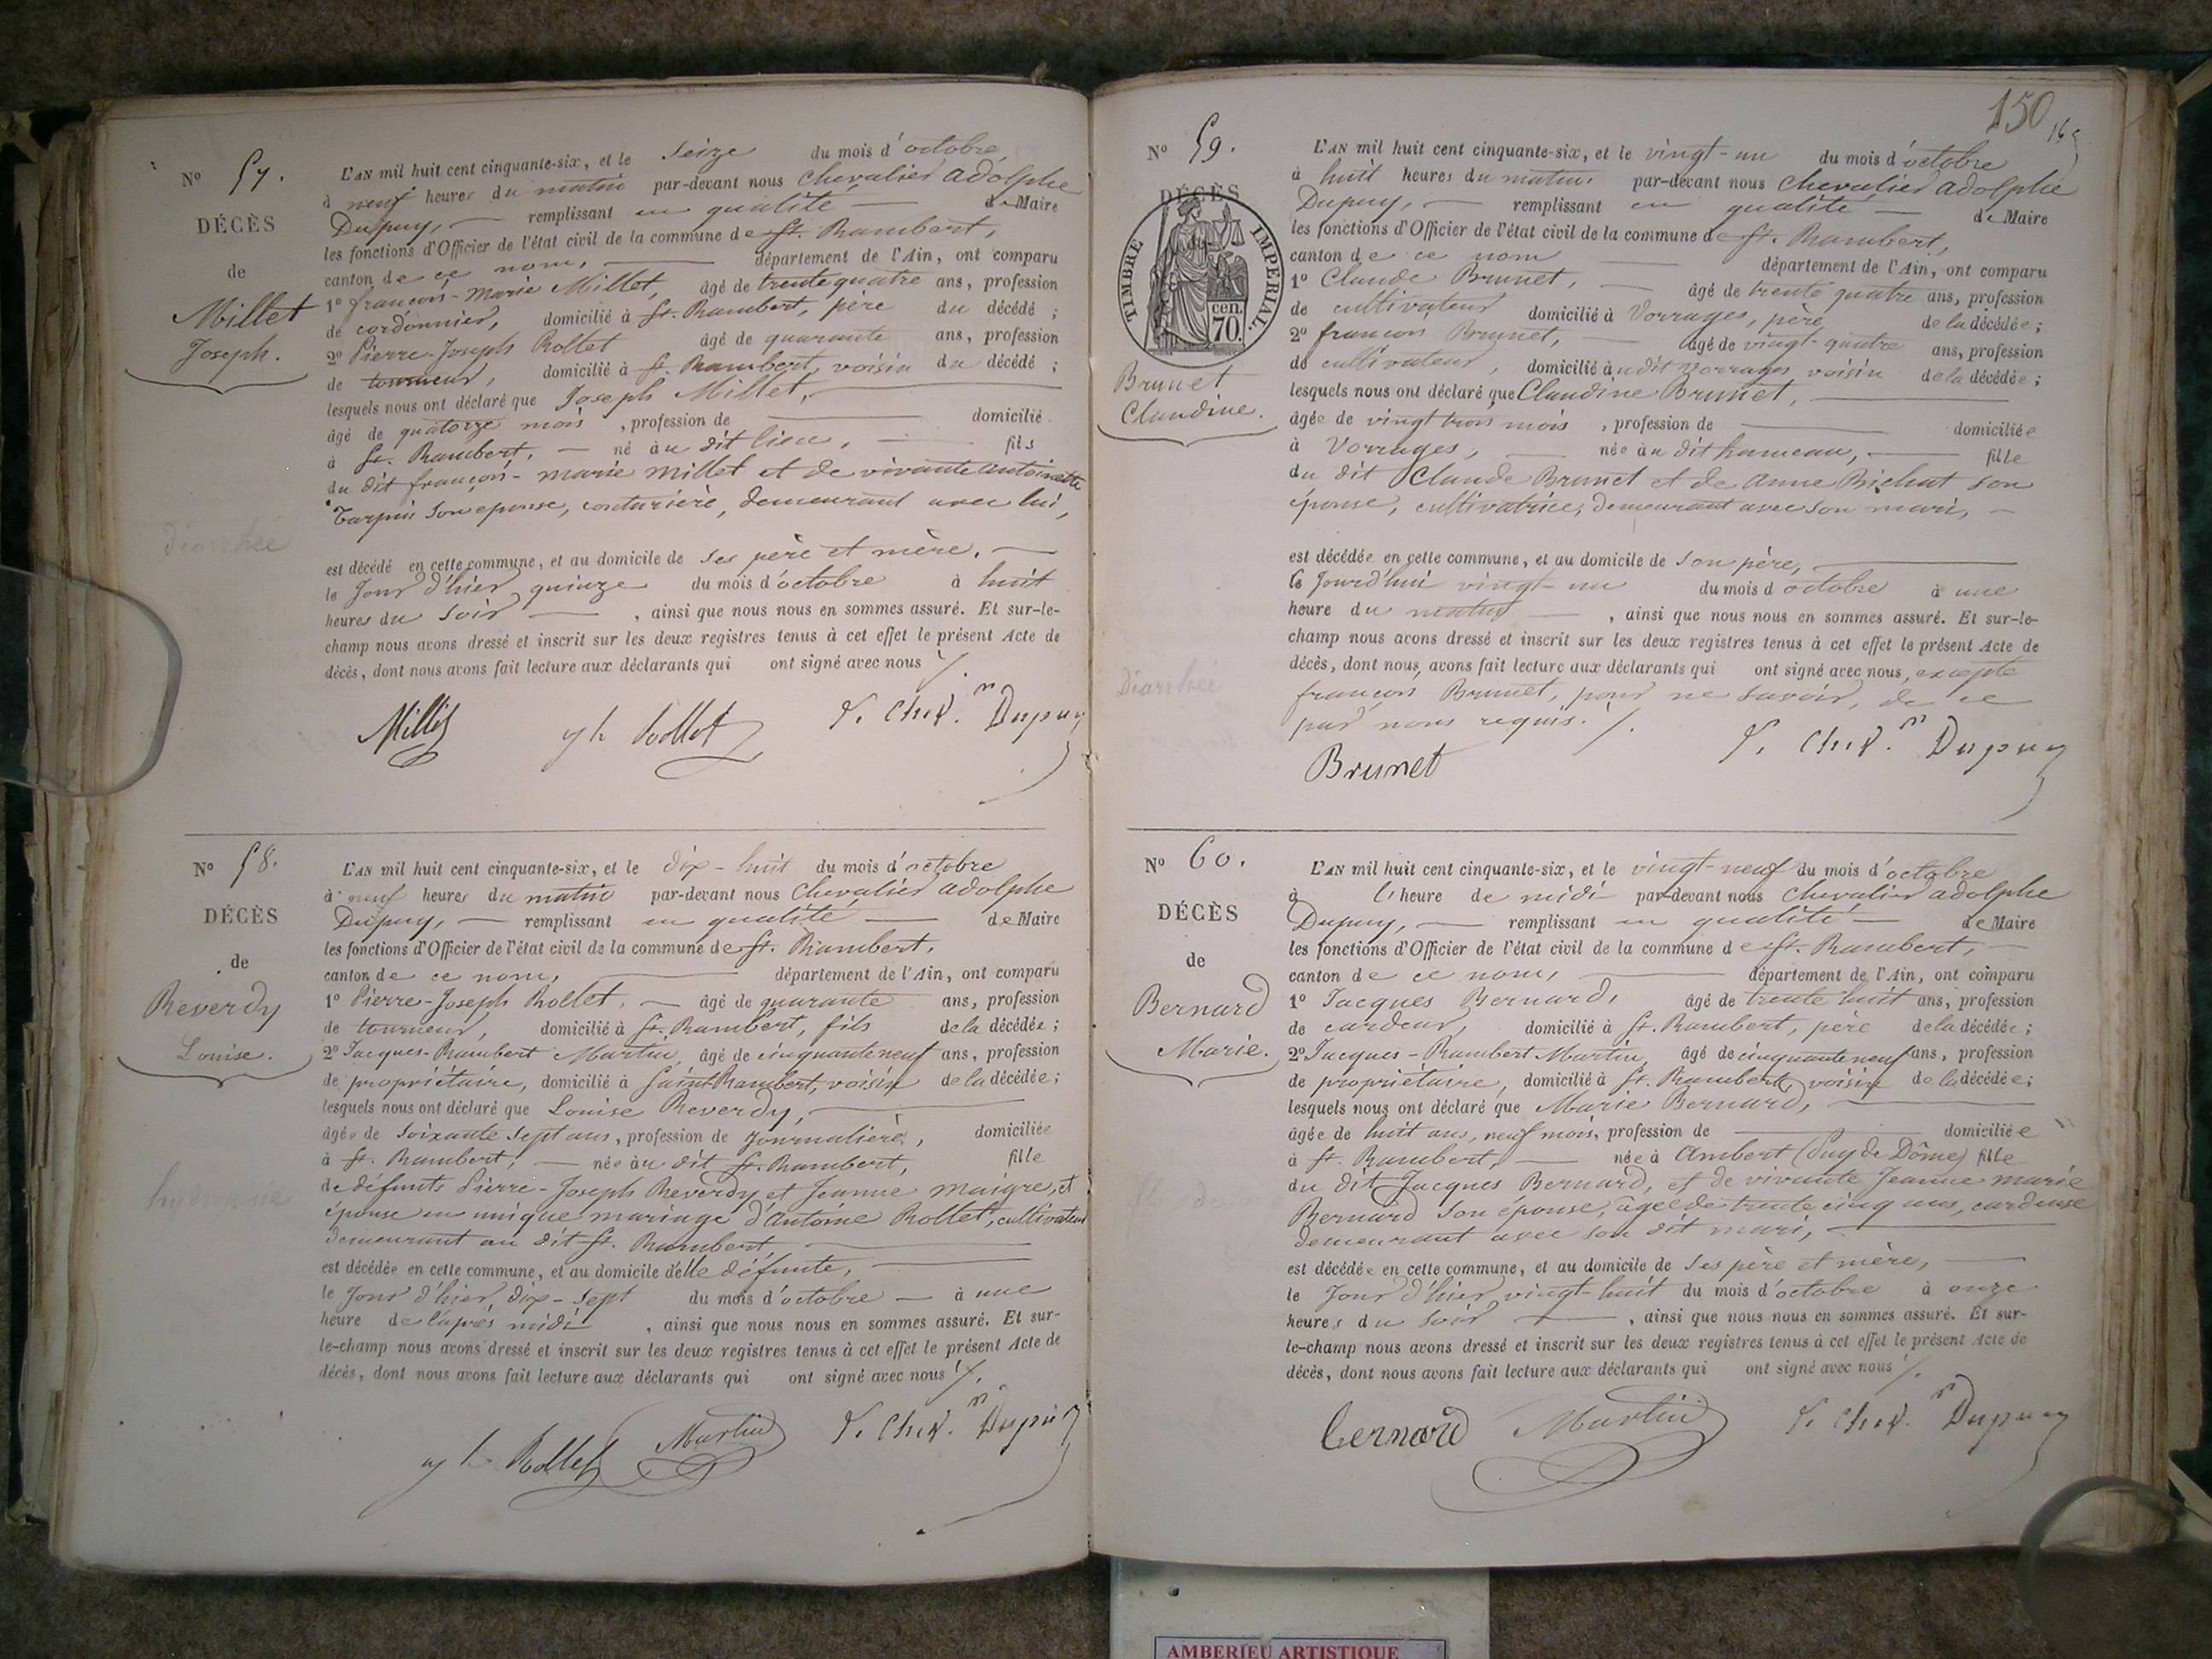 N° 57.
DÉCÈS
de
Millet
Joseph.
diarrhée
L'AN mil huit cent cinquante-six, et le Seize du mois d'octobre
à neuf heures du matin par-devant nous Chevalier Adolphe
Dupuy, remplissant en qualité de Maire
les fonctions d'Officier de l'état civil de la commune de St. Rambert,
canton de ce nom, département de l'Ain, ont comparu
1° françois-Marie Millet, âgé de trente quatre ans, profession
de cordonnier, domicilié à St. Rambert, père du décédé ;
2° Pierre-Joseph Rollet âgé de quarante ans, profession
de tourneur, domicilié à St. Rambert, voisin du décédé ;
lesquels nous ont déclaré que Joseph Millet,
âgé de quatorze mois , profession de domicilié
à St. Rambert, né au dit lieu, fils
du dit françois-marie Millet et de vivante antoinette
Tarpin son epouse, couturière, demeurant avec lui,
est décédé en cette commune, et au domicile de Ses père et mère,
le Jour d'hier quinze du mois d'octobre à huit
heures du Soir , ainsi que nous nous en sommes assuré. Et sur-le-
champ nous avons dressé et inscrit sur les deux registres tenus à cet effet le présent Acte de
décès, dont nous avons fait lecture aux déclarants qui ont signé avec nous
Rollet
Dupuy
N° 58.
DÉCÈS
de
Reverdy
Louise.
hydropisie
L'AN mil huit cent cinquante-six, et le dix-huit du mois d'octobre
à neuf heures du matin par-devant nous Chevalier Adolphe
Dupuy, remplissant en qualité de Maire
les fonctions d'Officier de l'état civil de la commune de St. Rambert,
canton de ce nom, département de l'Ain, ont comparu
1° Pierre-Joseph Rollet, âgé de quarante ans, profession
de tourneur, domicilié à St. Rambert, fils de la décédée ;
2° Jacques-Rambert Martin, âgé de cinquante neuf ans, profession
de propriétaire, domicilié à Saint-Rambert, voisin de la décédée ;
lesquels nous ont déclaré que Louise Reverdy,
âgée de Soixante Sept ans, profession de Journalière, domiciliée
à St. Rambert, née au dit St. Rambert, fille
de défunts Pierre-Joseph Reverdy et Jeanne Maigre, et
épouse en unique mariage d'Antoine Rollet, cultivateur
demeurant au dit St. Rambert,
est décédée en cette commune, et au domicile d'elle défunte,
le Jour d'hier dix-sept du mois d'octobre à une
heure de l'après midi , ainsi que nous nous en sommes assuré. Et sur-
le-champ nous avons dressé et inscrit sur les deux registres tenus à cet effet le présent Acte de
décès, dont nous avons fait lecture aux déclarants qui ont signé avec nous
Rollet Martin
Dupuy
150
N° 59.
DÉCÈS
TIMBRE IMPERIAL.
cen. 70.
Brunet
Claudine.
Diarrhée
L'AN mil huit cent cinquante-six, et le vingt-un du mois d'octobre
à huit heures du matin par-devant nous Chevalier Adolphe
Dupuy, remplissant en qualité de Maire
les fonctions d'Officier de l'état civil de la commune de St. Rambert,
canton de ce nom département de l'Ain, ont comparu
1° Claude Brunet, âgé de trente quatre ans, profession
de cultivateur domicilié à Vorrages, père de la décédée ;
2° françois Brunet, âgé de vingt-quatre ans, profession
de cultivateur, domicilié au dit Vorrages, voisin de la décédée ;
lesquels nous ont déclaré que Claudine Brunet,
âgée de vingt trois mois , profession de domiciliée
à Vorrages, née au dit hameau, fille
du dit Claude Brunet et de Anne Bichat son
épouse, cultivatrice, demeurant avec son mari,
est décédée en cette commune, et au domicile de son père,
le Jourd'hui vingt-un du mois d'octobre à une
heure du matin , ainsi que nous nous en sommes assuré. Et sur-le-
champ nous avons dressé et inscrit sur les deux registres tenus à cet effet le présent Acte de
décès, dont nous avons fait lecture aux déclarants qui ont signé avec nous, excepté
françois Brunet, pour ne savoir, de ce
par nous requis.
Brunet
Dupuy
N° 60.
DÉCÈS
de
Bernard
Marie.
L'AN mil huit cent cinquante-six, et le vingt-neuf du mois d'octobre
à l'heure de midi par-devant nous Chevalier Adolphe
Dupuy, remplissant en qualité de Maire
les fonctions d'Officier de l'état civil de la commune de St. Rambert,
canton de ce nom, département de l'Ain, ont comparu
1° Jacques Bernard, âgé de trente huit ans, profession
de cardeur, domicilié à St. Rambert, père de la décédée ;
2° Jacques-Rambert Martin, âgé de cinquante neuf ans, profession
de propriétaire, domicilié à St. Rambert, voisin de la décédée ;
lesquels nous ont déclaré que Marie Bernard,
âgée de huit ans, neuf mois, profession de domiciliée
à St. Rambert, née à Ambert (Puy de Dôme) fille
du dit Jacques Bernard, et de vivante Jeanne marie
Bernard son épouse, âgée de trente cinq ans, cardeuse
demeurant avec son dit mari,
est décédée en cette commune, et au domicile de Ses père et mère,
le Jour d'hier vingt-huit du mois d'octobre à onze
heures du soir , ainsi que nous nous en sommes assuré. Et sur-
le-champ nous avons dressé et inscrit sur les deux registres tenus à cet effet le présent Acte de
décès, dont nous avons fait lecture aux déclarants qui ont signé avec nous
Bernard Martin
Dupuy
AMBERIEU ARTISTIQUE